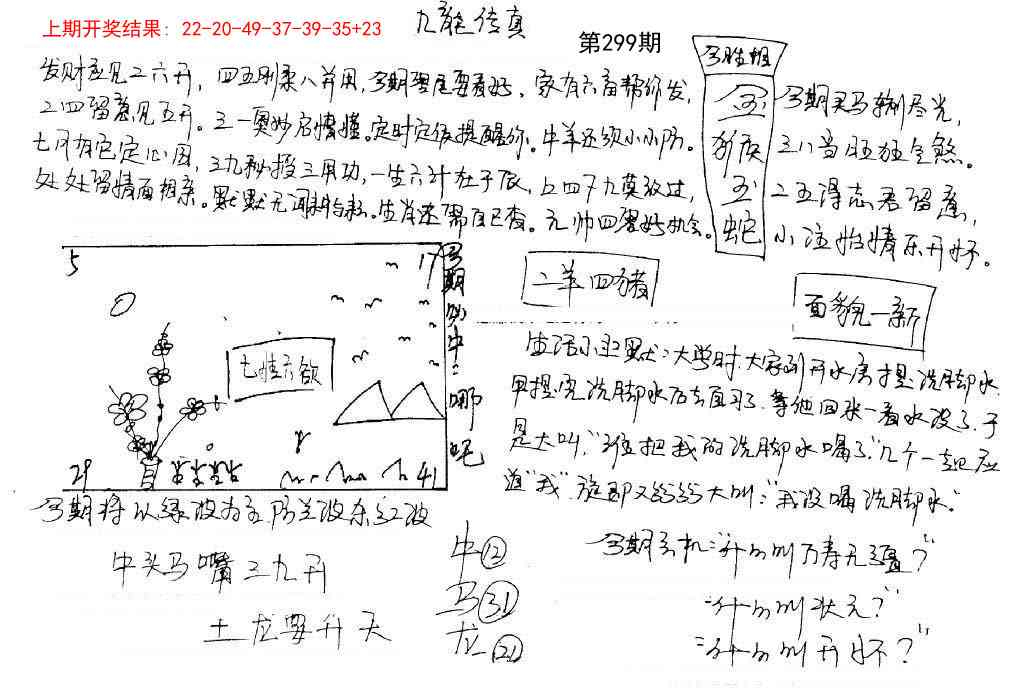 上期开奖结果：22-20-49-37-39-35+23
九龍传真
第299期
发财意见二六开，四五刚柔八并用，今期琴尾要看好。家有六畜帮你发，
二四留意见五开。三一奥妙后慷慨。定时定位提醒你。牛羊还须小心防。
七月有它定心困，三九秒投三用功，一生六计在于辰，上四下九莫放过，
处处留情面相亲。默默无闻耕耘。生肖还需自己查。元帅四君好机会。
今期灵马辆尽光，
三八当旺狂全煞。
二五得志君留意，
小注怡情乐开怀。
今胜组
金
猴
玉
蛇
5
17
29
41
七情六欲
今期必中：哪吒
二羊四猪
面貌一新
生活小幽默：大学时，大家到开水房提洗脚水，
甲提完洗脚水后去自习了，等他回来一看水没了，于
是大叫，"谁把我的洗脚水喝了"几个一起应
道"我"，旋即又纷纷大叫："我没喝洗脚水。"
今期将以绿波为主，防兰波杀红波
牛头马嘴三九开
土龙要升天
牛⑫
马㉛
龙㉑
今期玄机："什么叫万寿无疆？"
"什么叫状元？"
"什么叫开怀？"